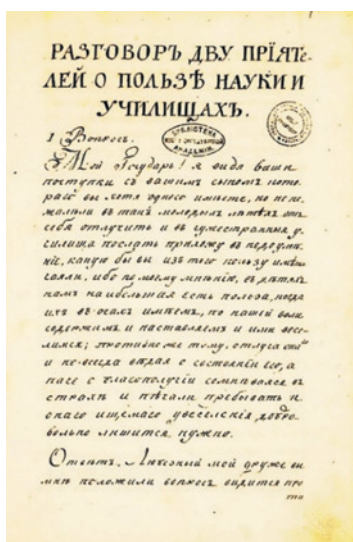 РАЗГОВОРЪ ДВУ ПРІЯТЕ-
ЛЕЙ О ПОЛЬЗѢ НАУКИ И
УЧИЛИЩАХЪ.
БИБЛІОТЕКА
АКАДЕМІИ
1 Вопросъ.
Мой Государь! я видя ваши
поступки съ вашимъ сыномъ кото-
раго вы хотя одного имѣете, но не по-
жалѣли въ такихъ молодыхъ лѣтѣхъ отъ
себя отлучить и въ чужестранныя у-
чилища послать прихожу въ недоумѣ-
ніе, какую бы вы изъ того пользу имѣть
чаяли, ибо по моему мнѣнію, въ дѣтяхъ
намъ наибольшая есть польза, когда
ихъ въ очахъ имѣемъ, по нашей воли
содержимъ и наставляемъ и ими весе-
лимся; противно же тому, отлуча
и не всегда вѣдая о состояніи его, а
паче о благополучіи сомневаяся въ
страхѣ и печали пребывать и
онаго ищемаго увеселенія добро-
вольно лишится нужно.
Отвѣтъ. Любезный мой друже вы
мнѣ положили вопросъ видится про